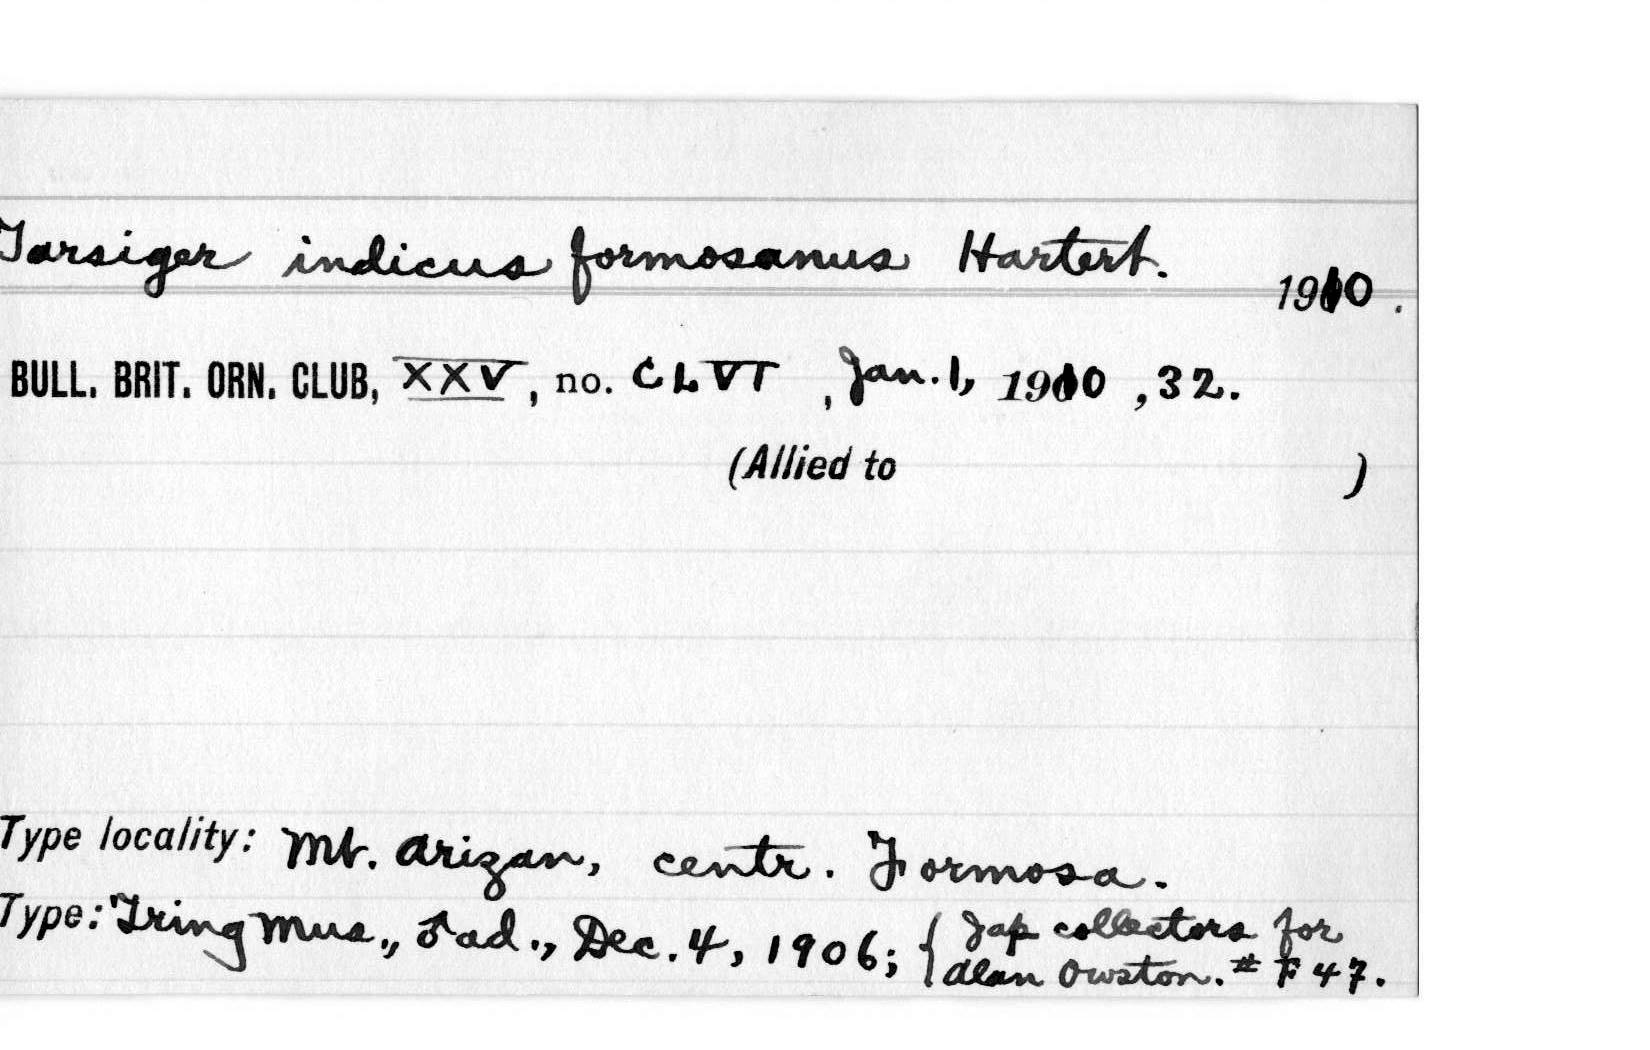 Tarsiger indicus formosanus Hartert.
1910.
BULL. BRIT. ORN. CLUB, XXV, no. CLVI, Jan. 1, 1910, 32.
(Allied to )
Type locality: Mt. Arizan, centr. Formosa.
Type: Tring Mus., ♂ ad., Dec. 4, 1906; { Jap collectors for
Alan Owston. # F 47.